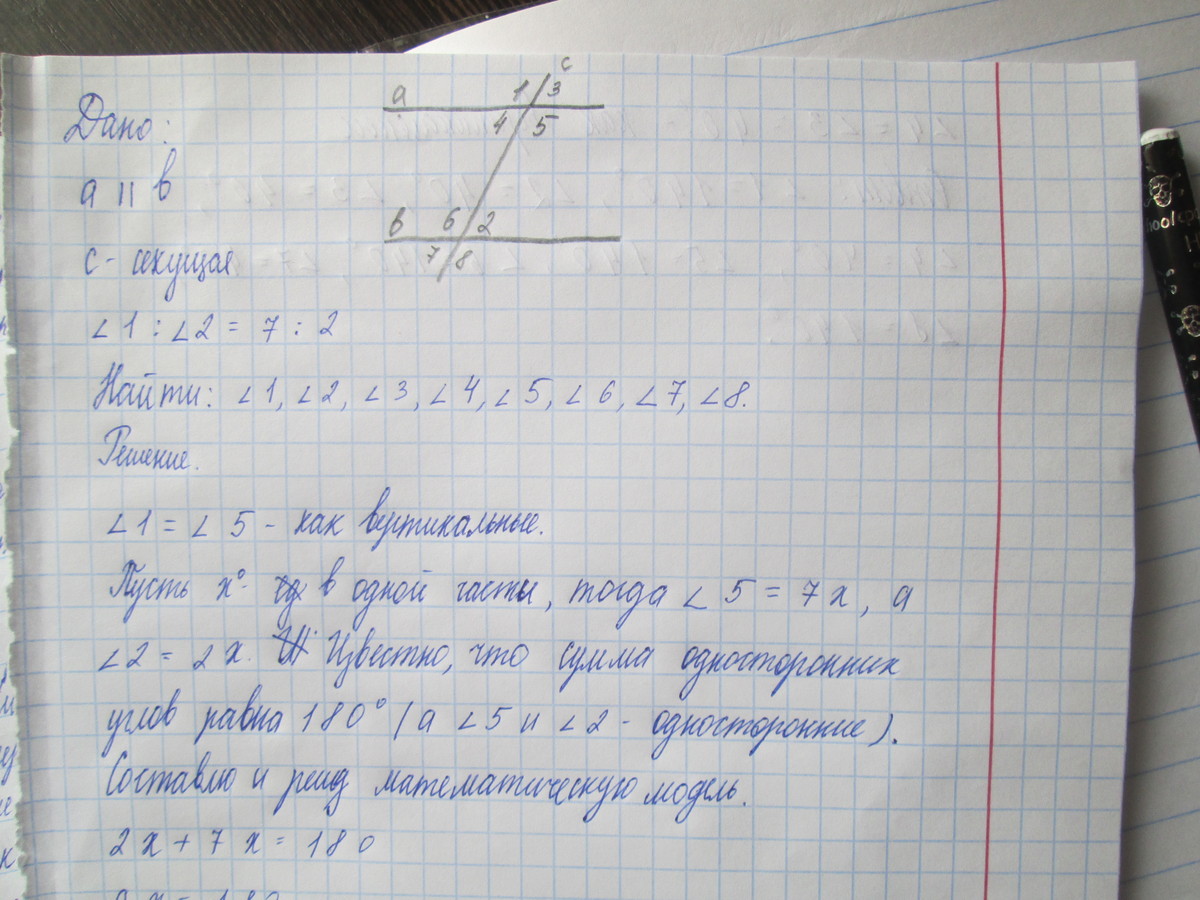 c
a 1 3
4 5
Дано:
a || в
в 6 2
7 8
c - секущая
∠1 : ∠2 = 7 : 2
Найти: ∠1, ∠2, ∠3, ∠4, ∠5, ∠6, ∠7, ∠8.
Решение.
∠1 = ∠5 - как вертикальные.
Пусть x° в одной части, тогда ∠5 = 7x, а
∠2 = 2x. Известно, что сумма односторонних
углов равна 180° (а ∠5 и ∠2 - односторонние).
Составлю и решу математическую модель.
2x + 7x = 180